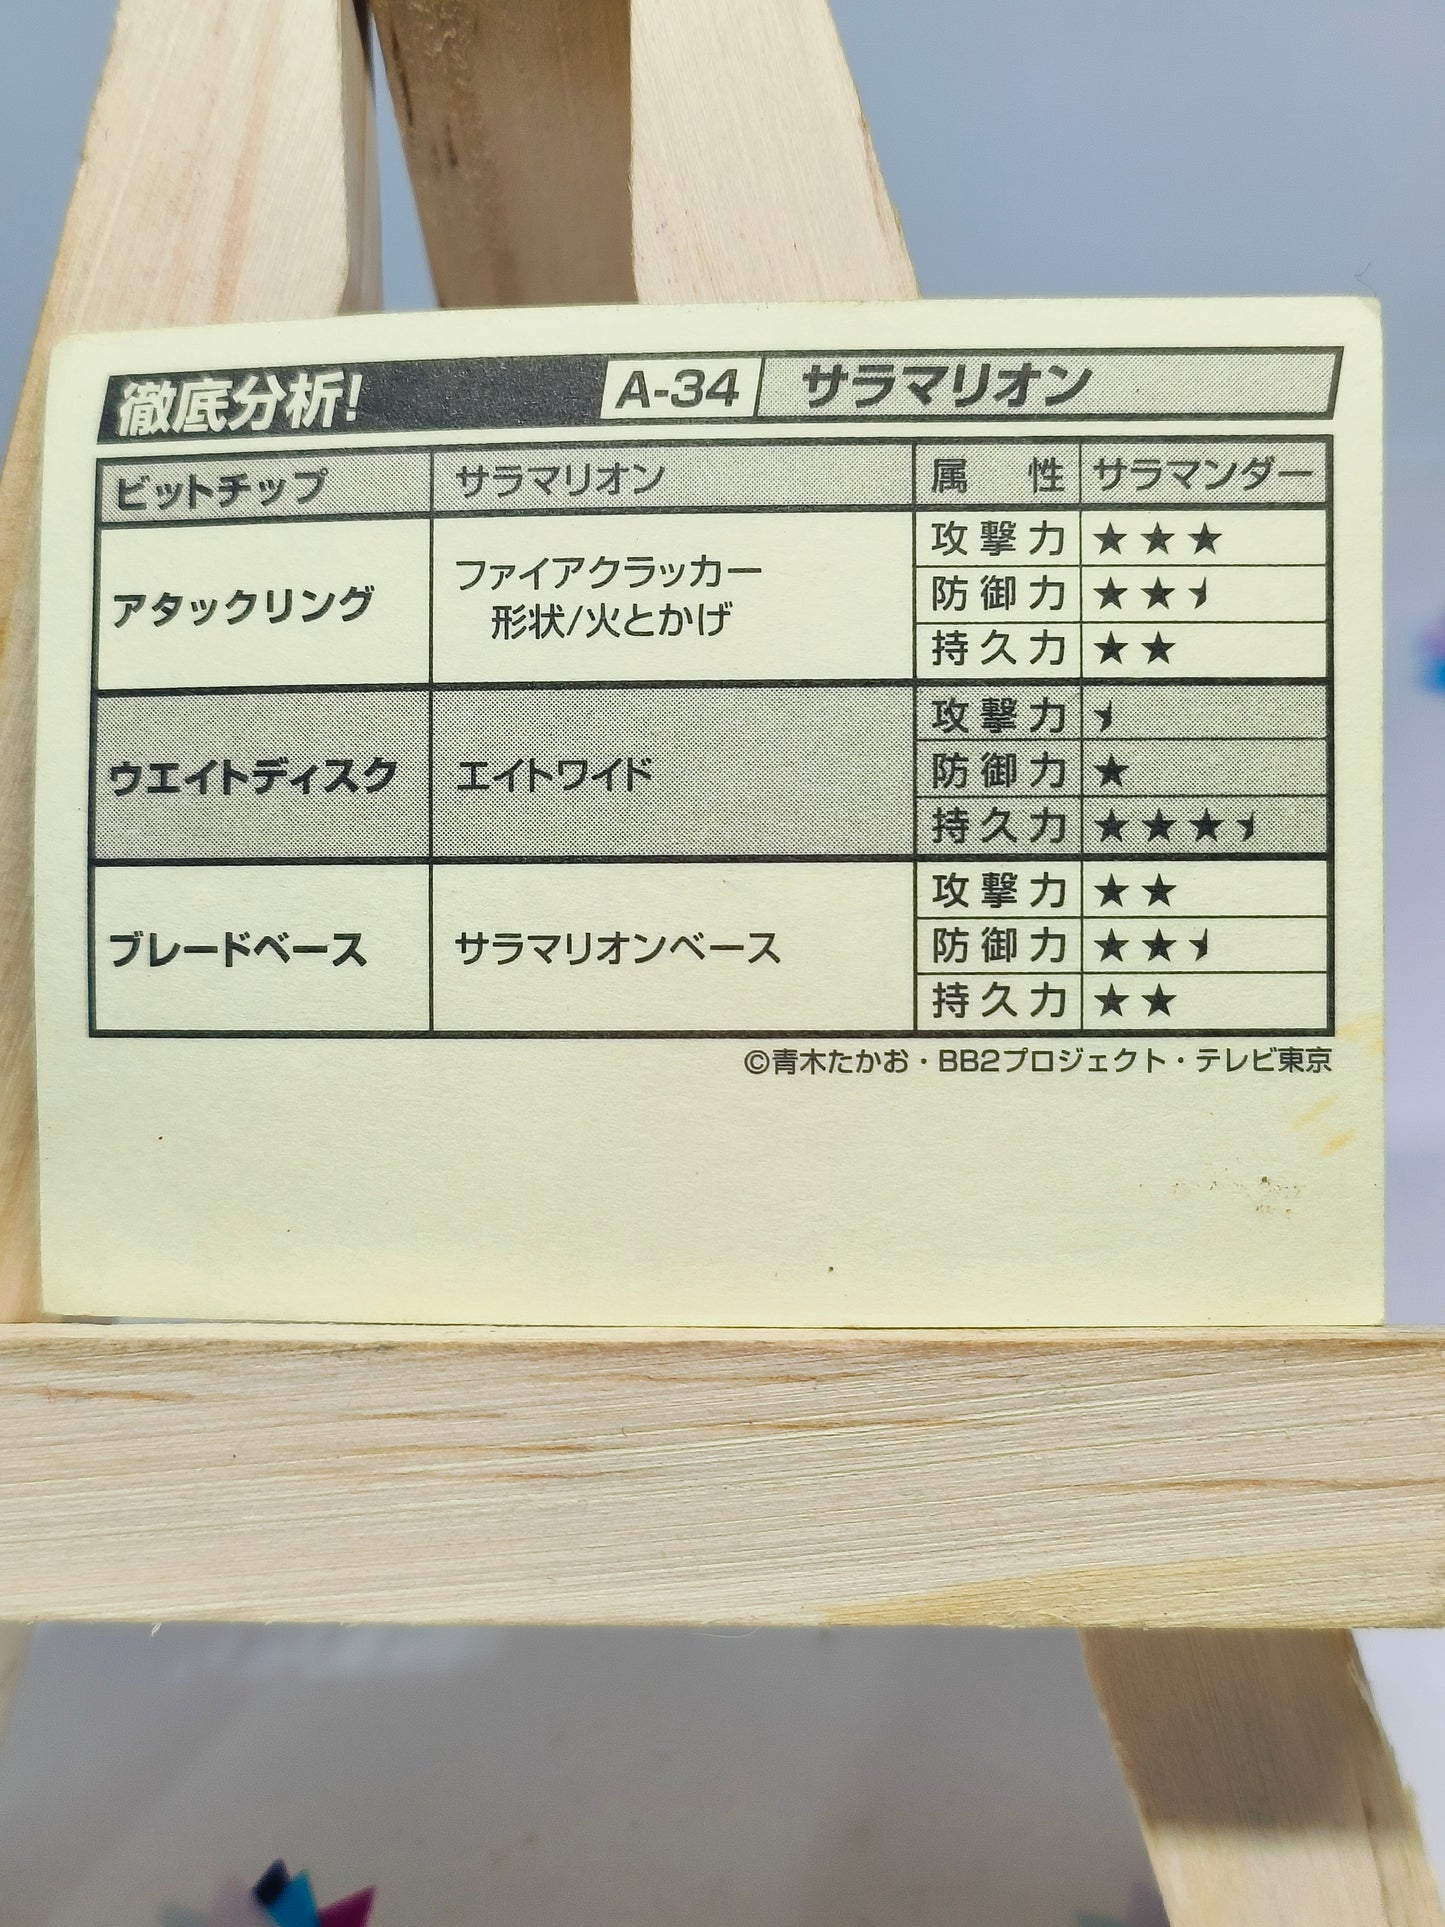 徹底分析! A-34 サラマリオン
ビットチップ サラマリオン 属性 サラマンダー
アタックリング ファイアクラッカー
形状/火とかげ
攻撃力 ★★★
防御力 ★★⯨
持久力 ★★
ウエイトディスク エイトワイド
攻撃力 ⯨
防御力 ★
持久力 ★★★⯨
ブレードベース サラマリオンベース
攻撃力 ★★
防御力 ★★⯨
持久力 ★★
©青木たかお・BB2プロジェクト・テレビ東京